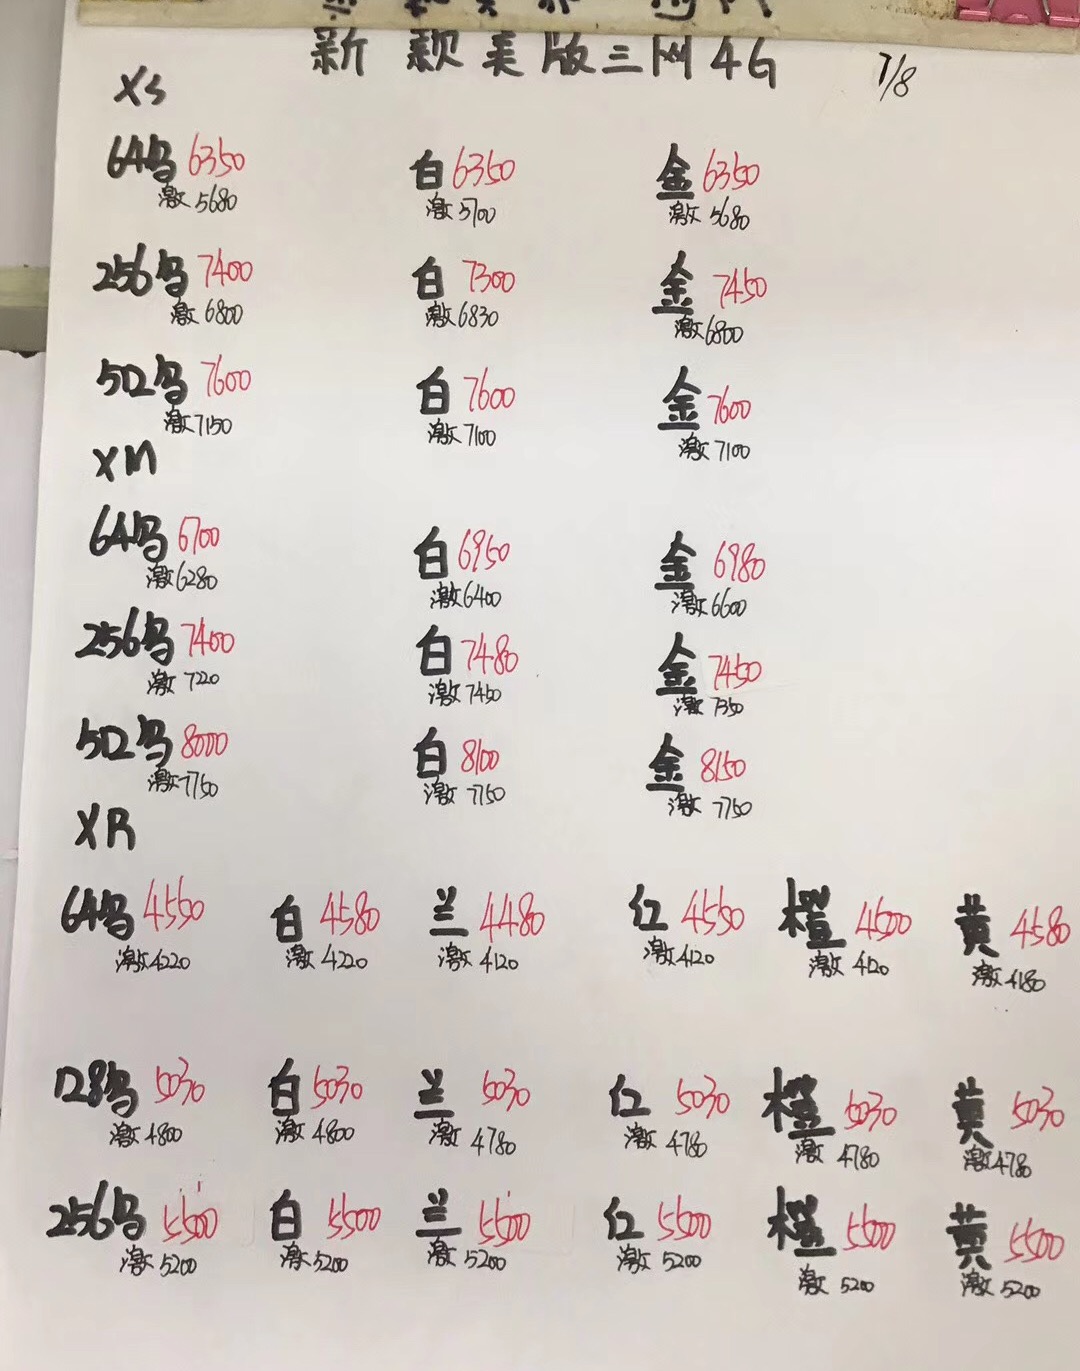 新款美版三网4G 7/8
XS
64乌 6350 白 6350 金 6350
激 5680 激 5700 激 5680
256乌 7400 白 7300 金 7450
激 6800 激 6830 激 6800
512乌 7600 白 7600 金 7600
激 7150 激 7100 激 7100
XM
64乌 6700 白 6950 金 6980
激 6280 激 6400 激 6600
256乌 7400 白 7480 金 7450
激 7220 激 7450 激 7350
512乌 8000 白 8100 金 8150
激 7750 激 7750 激 7750
XR
64乌 4550 白 4580 兰 4480 红 4550 橙 4500 黄 4580
激 4220 激 4220 激 4120 激 4120 激 4120 激 4180
128乌 5030 白 5030 兰 5030 红 5030 橙 5030 黄 5030
激 4800 激 4800 激 4780 激 4780 激 4780 激 4780
256乌 5500 白 5500 兰 5500 红 5500 橙 5500 黄 5500
激 5200 激 5200 激 5200 激 5200 激 5200 激 5200